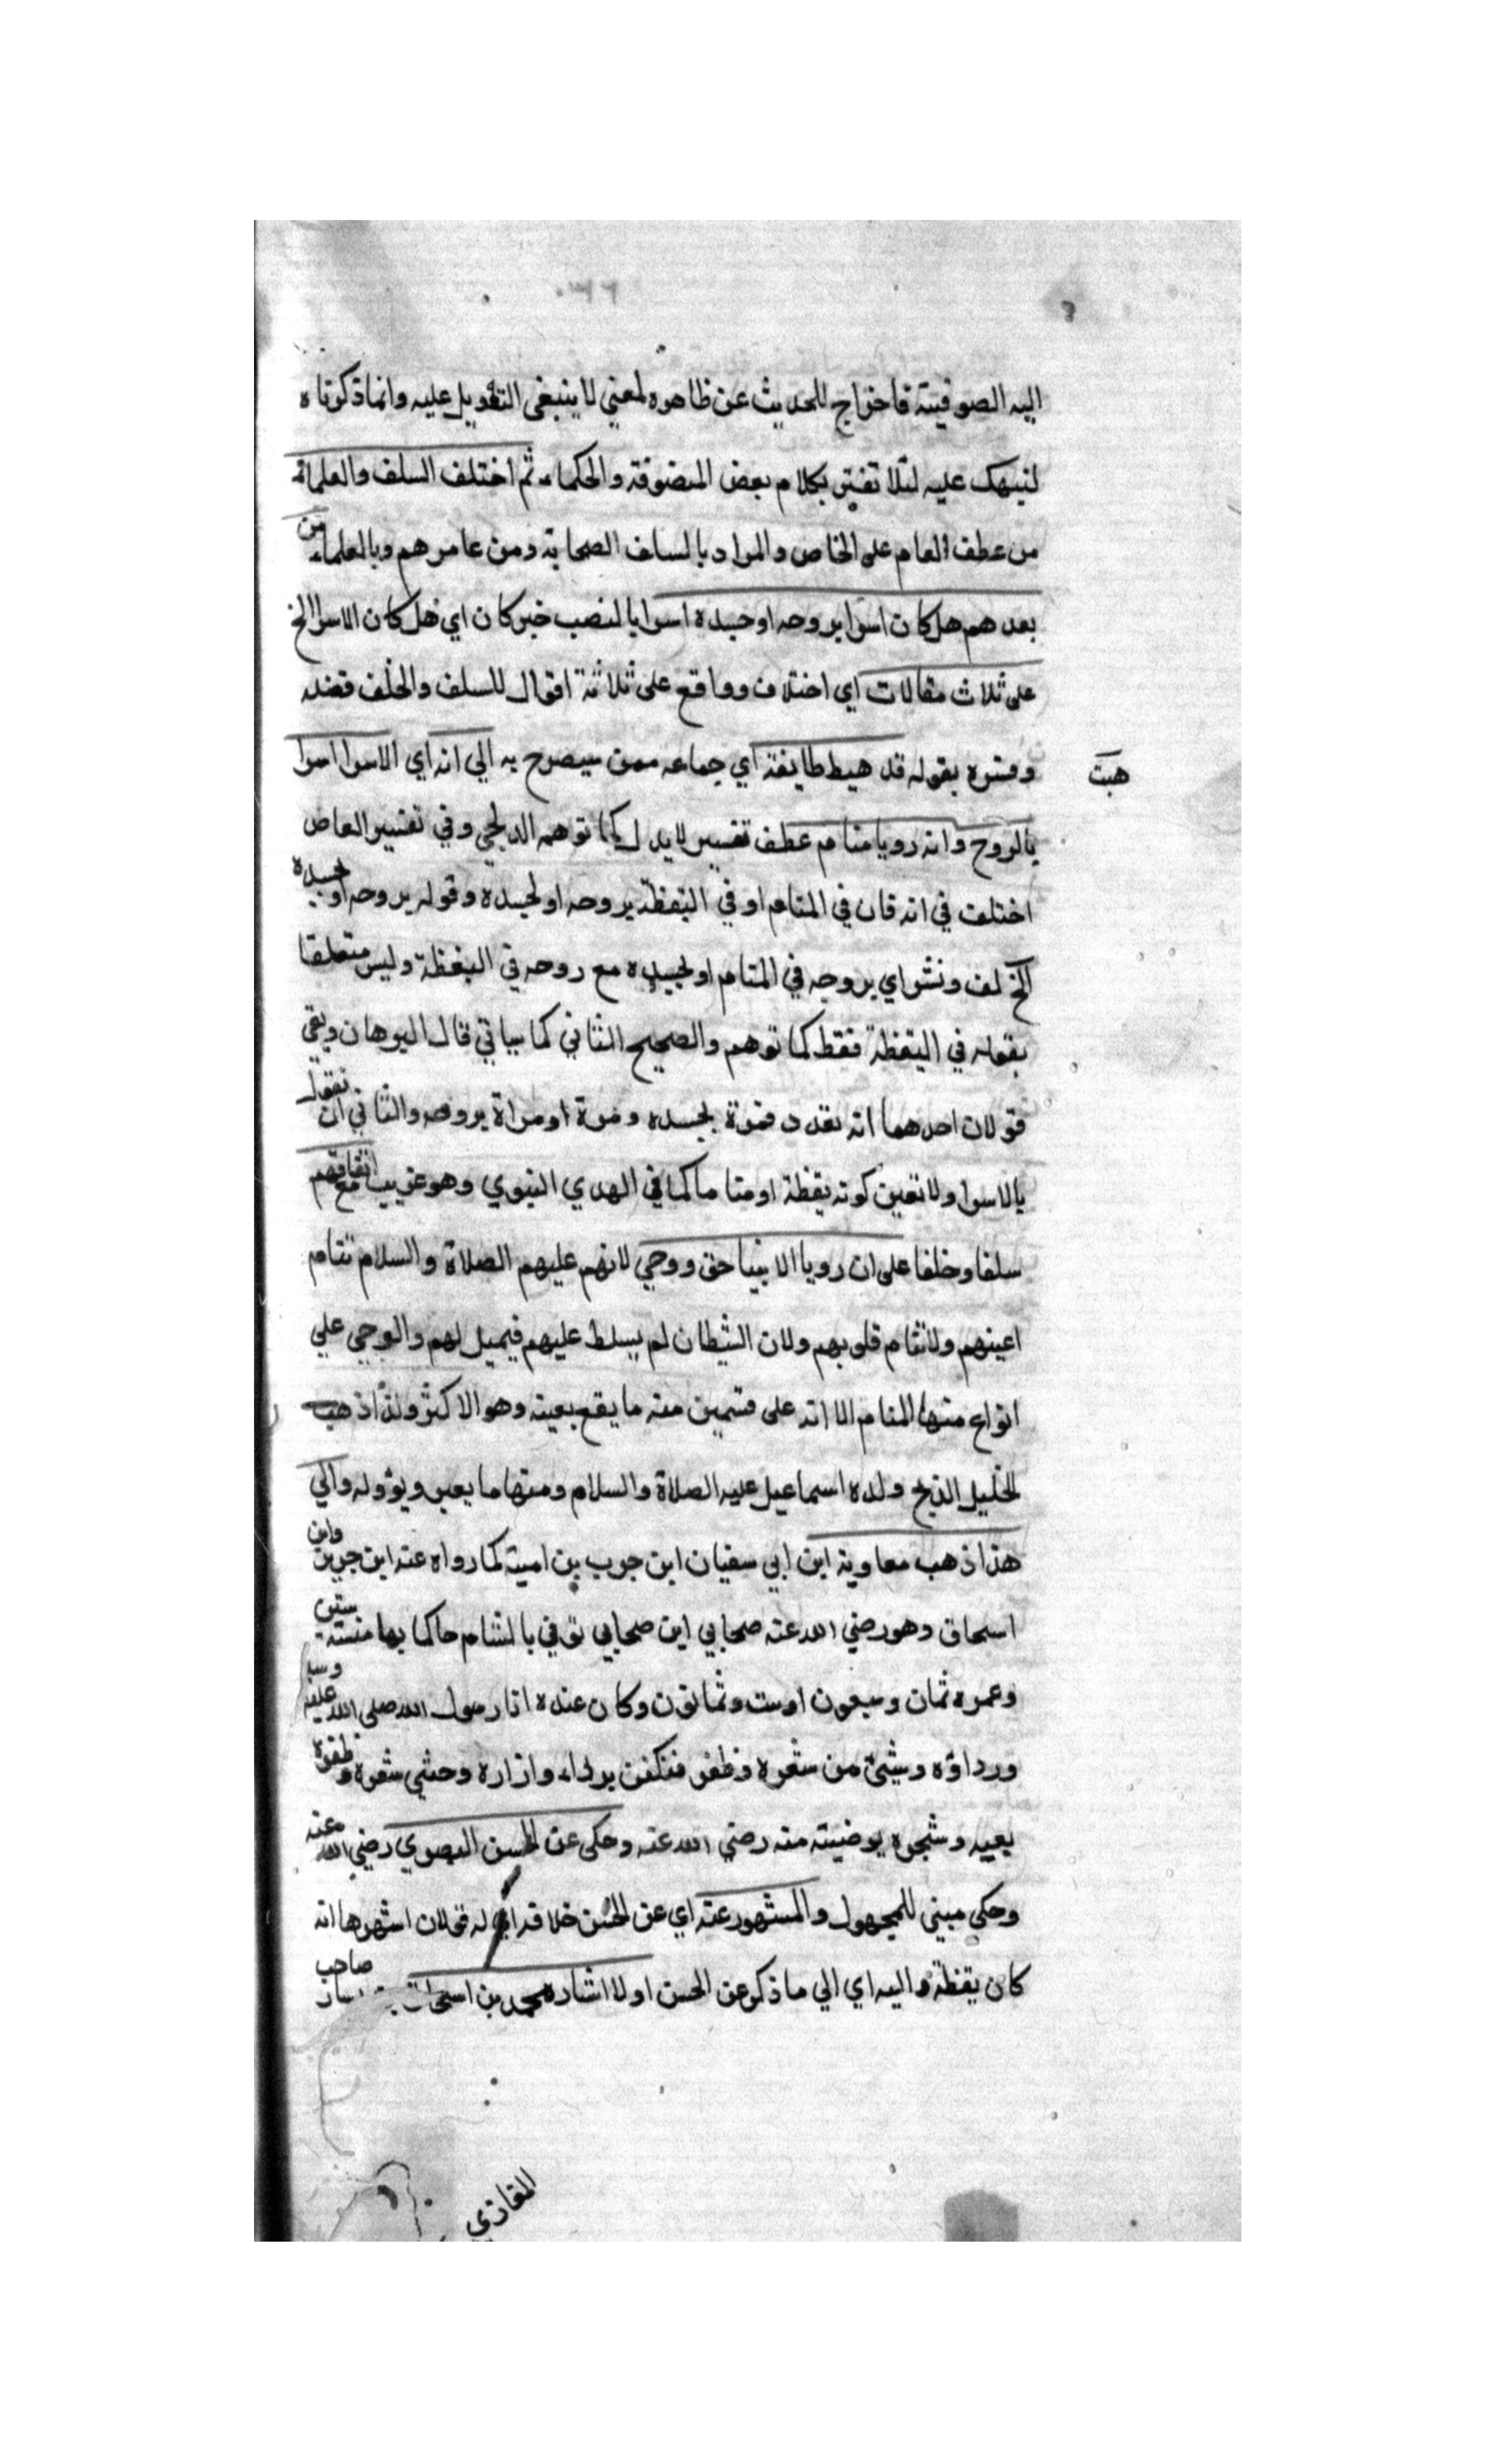 ٠٣٢٦
اليه الصوفية فاخراج للحديث عن ظاهره لمعني لا ينبغي التعويل عليه وانما ذكرناه
لننبهك عليه لئلا تغتر بكلام بعض المتصوفة والحكماء ثم اختلف السلف والعلماء
من عطف العام على الخاص والمراد بالسلف الصحابة ومن عاصرهم وبالعلماء من
بعدهم هل كان اسرا بروحه او جسده اسرا بالنصب خبر كان اي هل كان الاسرا الخ
على ثلاث مقالات اي اختلاف وواقع على ثلاثة اقوال للسلف والخلف فصله
وفسره بقوله قد هبط طايفة اي جماعه ممن سيصرح به الي انه اي الاسرا اسرا
هبت
بالروح وانه رويا منام عطف تفسير لا بدل كما توهمه الدلجي وفي تفسير
اختلف في انه كان في المنام او في اليقظة بروحه او بجسده وقوله بروحه او بجسده
الخ لف ونشر اي بروحه في المنام او بجسده مع روحه في اليقظة وليس متعلقا
بقوله في اليقظة فقط كما توهم والصحيح الثاني كما سياتي قال البرهان وبقي
قولان احدهما انه تعدد فمرة بجسده ومرة او مراة بروحه والثاني ان نقول
بالاسرا ولا نعين كونه يقظة او مناما كما في الهدي النبوي وهو غريب مع اتفاقهم
سلفا وخلفا على ان رويا الانبيا حق ووحي لانهم عليهم الصلاة والسلام تنام
اعينهم ولا تنام قلوبهم ولان الشيطان لم يسلط عليهم فيميل لهم والوحي علي
انواع منها المنام الا انه على قسمين منه ما يقع بعينه وهو الاكثر ولذا ذهب
الخليل الذبح ولده اسماعيل عليه الصلاة والسلام ومنها ما يعبر ويؤوله والي
هذا ذهب معاوية ابن ابي سفيان ابن حرب بن امية كما رواه عنه ابن جرير وابن
اسحاق وهو رضي الله عنه صحابي ابن صحابي توفي بالشام حاكما بها سنة ستين
وعمره ثمان وسبعون او ست وثمانون وكان عنده ازار رسول الله صلى الله عليه وسلم
ورداؤه وشيئ من شعره وظفره فتكفن بردائه وازاره وحشي شعره وظفره
بفيه وشجره بوصيته منه رضي الله عنه وحكى عن الحسن البصري رضي الله عنه
وحكي مبني للمجهول والمشهور عنه اي عن الحسن خلافه اي له قولان اشهرها انه
كان يقظة واليه اي الي ما ذكر عن الحسن اولا اشار محمد بن اسحاق بن يسار صاحب
المغازي